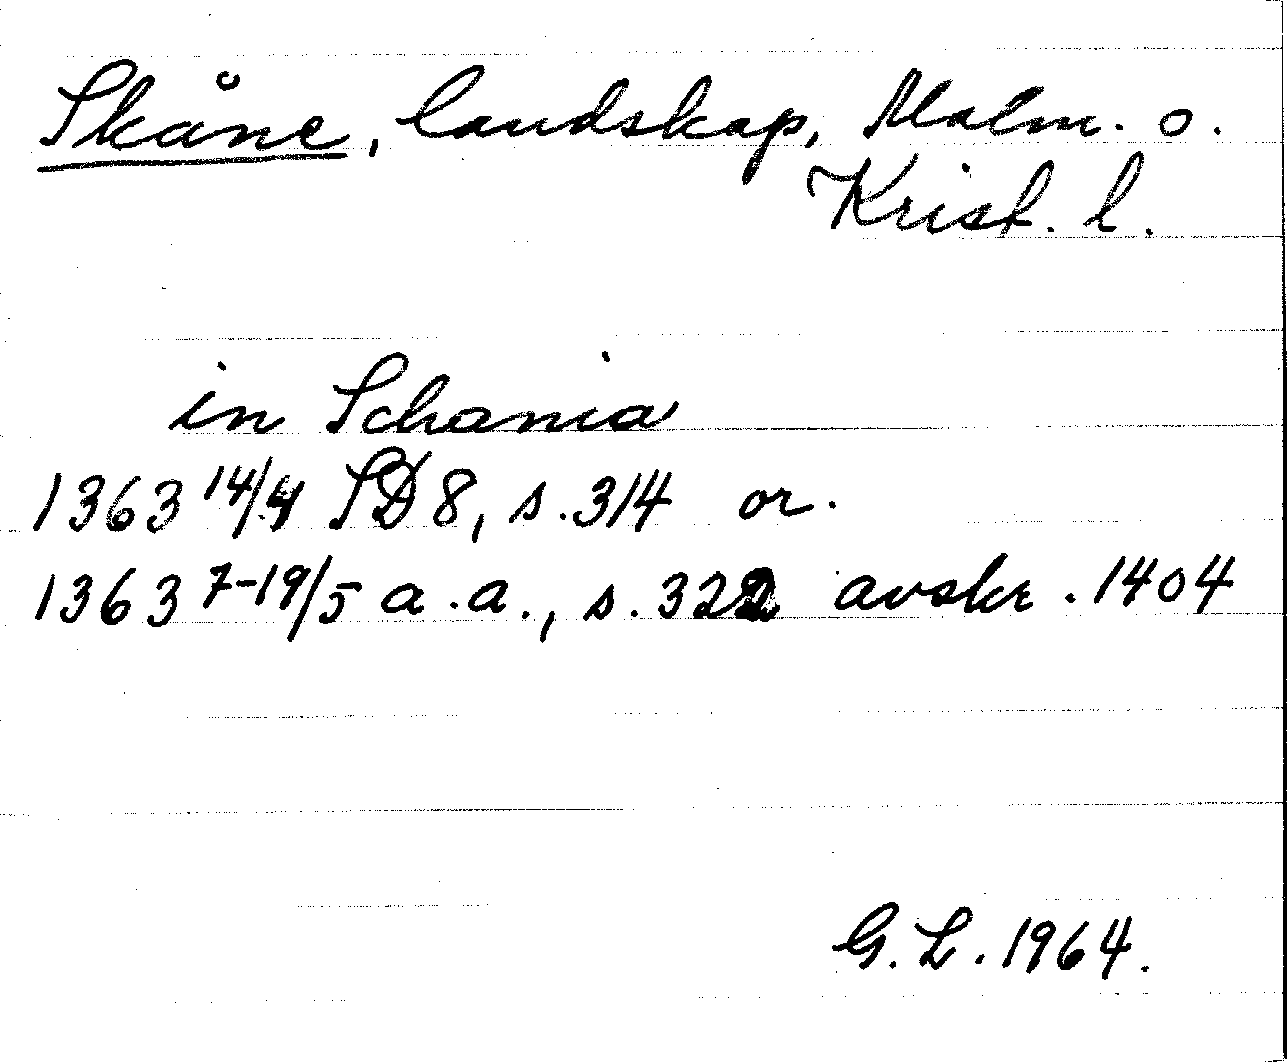 Skåne, landskap, Malm. o.
Krist. l.
in Schania
1363 14/4 SD 8, s. 314 or.
1363 7-19/5 a.a., s. 322 avskr. 1404
G. L. 1964.